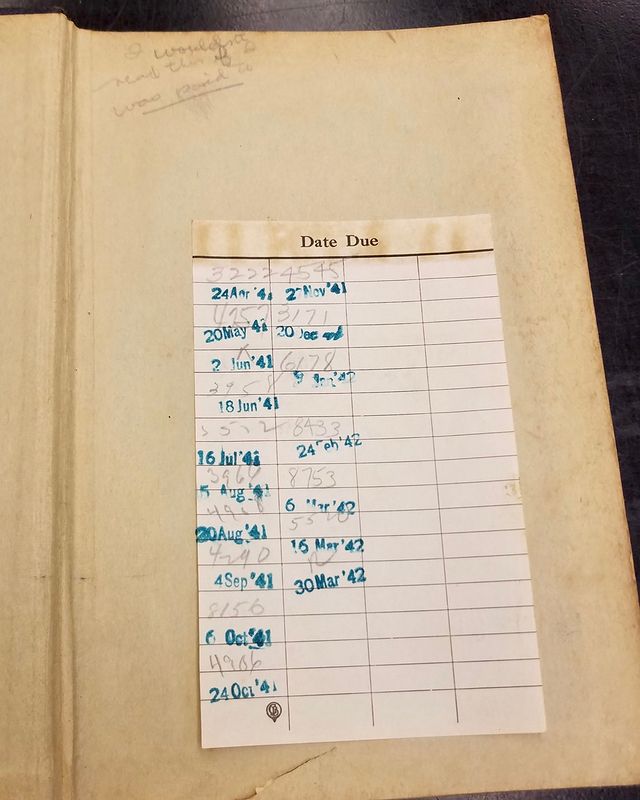 I wouldn't
read this if I
was paid to
Date Due
3222 4545
24 Apr '41 2 Nov '41
3171
20 May '41 20 Dec
2 Jun '41 6178
9 Jan '42
18 Jun '41
8433
16 Jul '41 24 Feb '42
3966 8753
5 Aug '41
6 Mar '42
20 Aug '41
4290 16 Mar '42
4 Sep '41 30 Mar '42
8156
6 Oct '41
4906
24 Oct '41